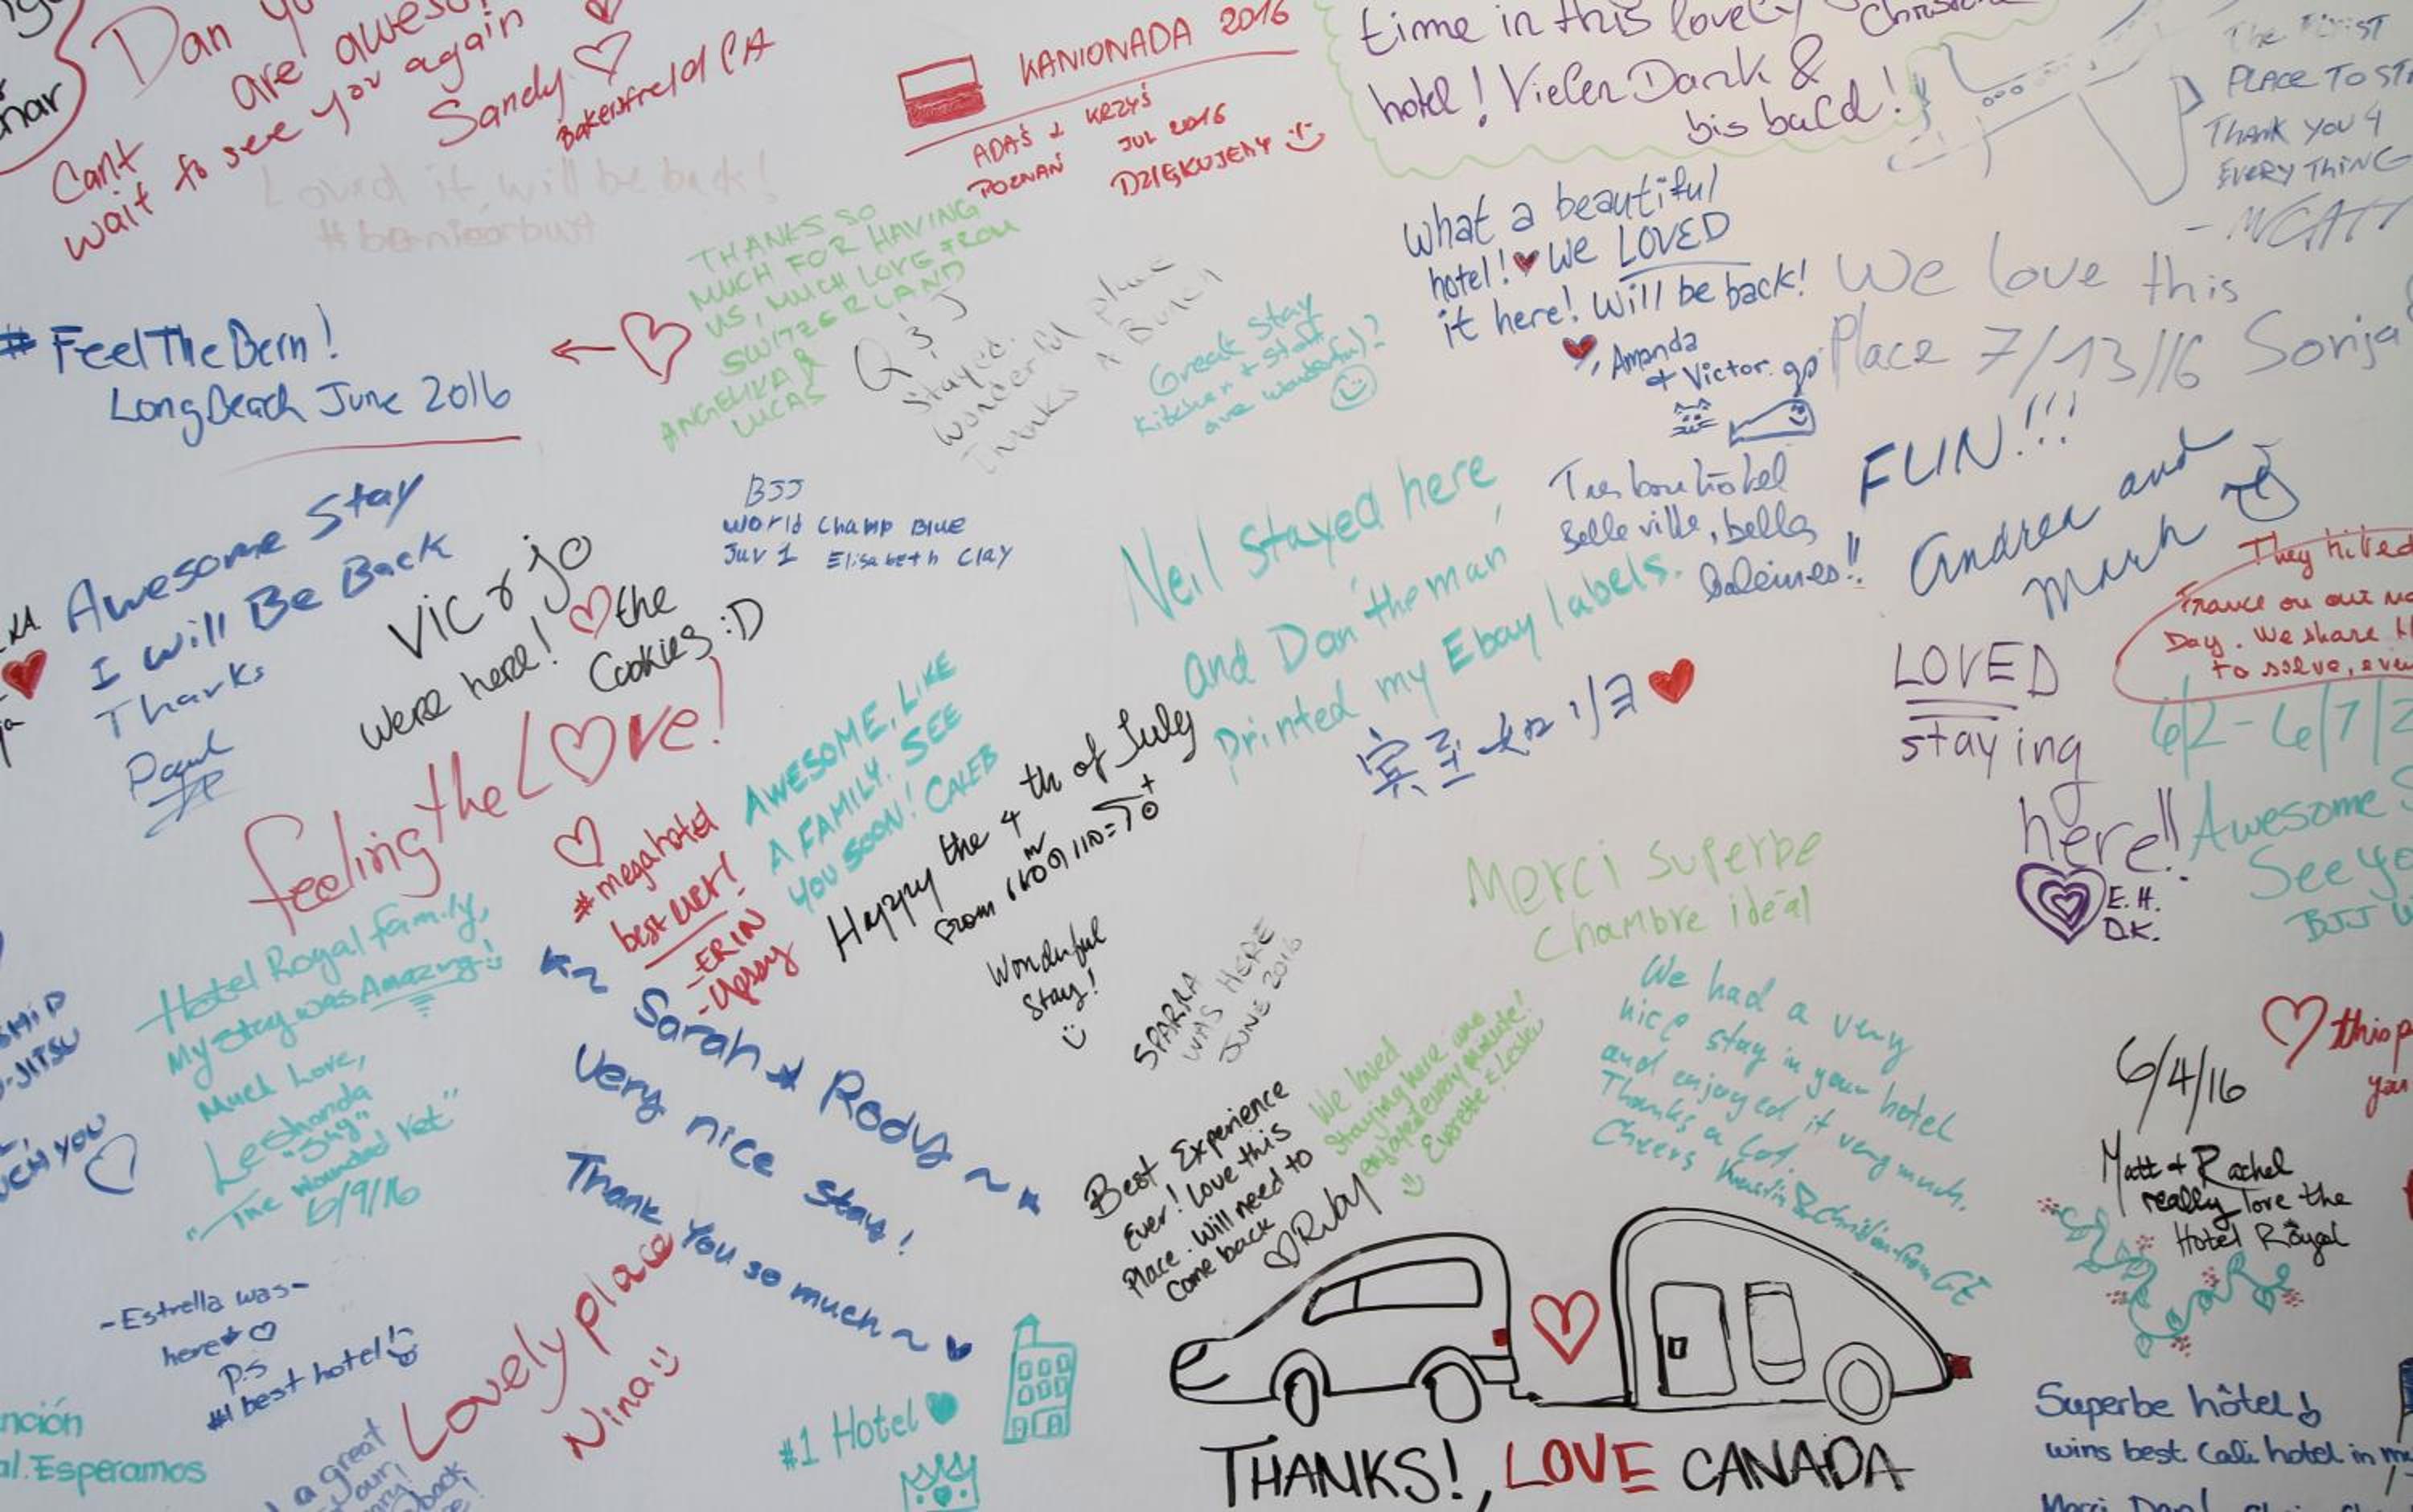 Dan you
are awesome
Can't
wait to see you again
Sandy
Bakersfield CA
Loved it, will be back!
KANIONADA 2016
ADAŚ & KRZYŚ
POZNAŃ JUL 2016
DZIĘKUJEMY
time in this lovely
hotel! Vielen Dank &
bis bald!
The First
PLACE TO
THANK YOU 4
EVERY THING
THANKS SO
MUCH FOR HAVING
US, MUCH LOVE FROM
SWITZERLAND
ANGELIKA &
LUCAS
What a beautiful
hotel! We LOVED
it here! Will be back!
Amanda
+ Victor
We love this
Place 7/13/16 Sonja
#FeelTheBern!
Long Beach June 2016
Q & J
Stayed.
Wonderful place
Thanks A Bunch
Great Stay
Kitchen + staff
are wonderful
FUN!!!
Andrea and
Mark
Awesome Stay
I will Be Back
Thanks
Paul
BJJ
World Champ Blue
Juv 1 Elisabeth Clay
Neil stayed here
and Dan 'the man'
printed my Ebay labels.
Tres bon hôtel
Belle ville, belles
baleines!!
They hired
Day. We share
to solve, even
Vic & Jo
were here! the
Cookies :D
feeling the LOVE!
賓至如归
LOVED
staying
here!!
E.H.
D.K.
6/2-6/7/2
Awesome S
See yo
BJJ W
AWESOME, LIKE
A FAMILY. SEE
YOU SOON! CALEB
#megahotel
best ever!
-ERIN
Happy the 4th of July
from
Wonderful
Stay!
SPARRA
WAS HERE
JUNE 2016
Merci Superbe
Chambre idéal
Hotel Royal family,
My stay was Amazing!
Much Love,
Leshonda
"Shy"
"The Wounded Vet"
6/9/16
Sarah Rody
Very nice stay!
Thank you so much
Best Experience
Ever! Love this
Place. Will need to
Come back
Ruby
We loved
staying here and
enjoyed every minute!
We had a very
nice stay in your hotel
and enjoyed it very much.
Thanks a lot.
Cheers
this p
you
6/4/16
Matt + Rachel
really love the
Hotel Royal
-Estrella was-
here
P.S
#1 best hotel!
Lovely place
Nina
#1 Hotel
Esperamos
a great
THANKS!, LOVE CANADA
Superbe hôtel
wins best Cali hotel in